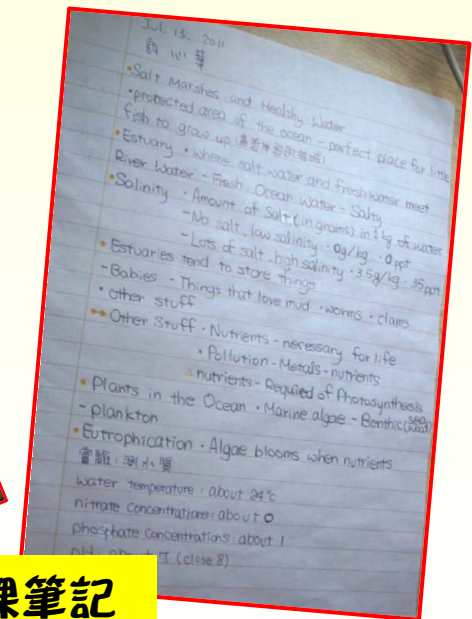 Jul. 13. 2011
許心華
•Salt Marshes and Healthy Water
•protected area of the ocean - perfect place for little
fish to grow up
•Estuary • where salt water and fresh water meet
River Water - Fresh Ocean Water - Salty
•Salinity • Amount of Salt (in grams) in 1 kg of water
-No salt, low salinity • 0g/kg • 0ppt
-Lots of salt, high salinity • 35g/kg • 35ppt
•Estuaries tend to store things
-Babies - Things that love mud • worms • clams
• other stuff
Other Stuff • Nutrients - necessary for life
• Pollution - Metals - nutrients
nutrients - Required of Photosynthesis
•Plants in the Ocean • Marine algae - Benthic (sea weed)
-plankton
•Eutrophication • Algae blooms when nutrients
實驗:測水質
water temperature: about 24℃
nitrate concentrations: about 0
phosphate concentrations: about 1
pH: about 7 (close 8)
課筆記